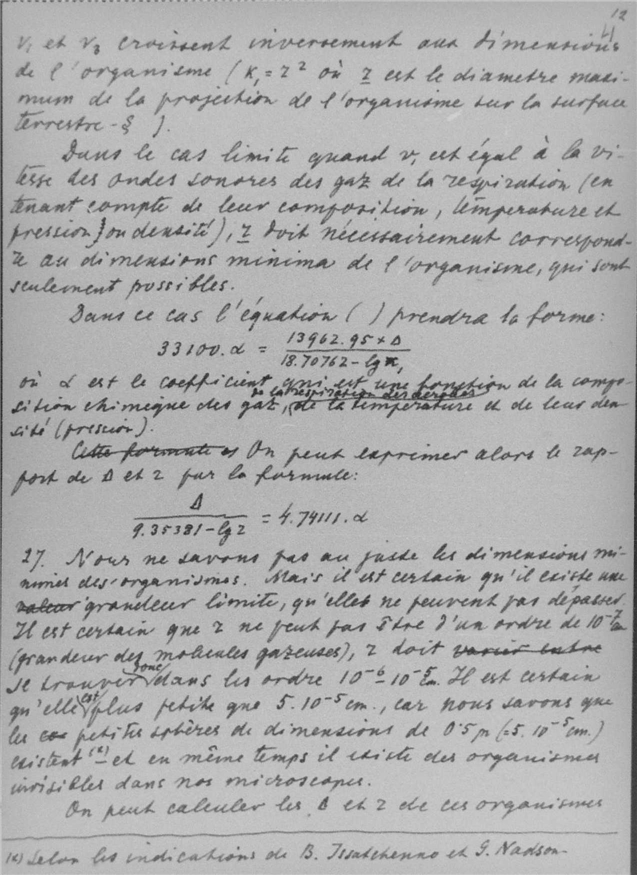 12
4
v₁ et v₃ croissent inversement aux dimensions
de l'organisme (K₁ = r² où r est le diametre maxi-
mum de la projection de l'organisme sur la surface
terrestre - ξ ).
Dans le cas limite quand v₁ est égal à la vi-
tesse des ondes sonores des gaz de la respiration (en
tenant compte de leur composition, température et
pression) ou densité), r doit nécessairement correspond-
re au dimensions minima de l'organisme, qui sont
seulement possibles.
Dans ce cas l'équation ( ) prendra la forme:
33100.α = 13962.95 × Δ / 18.70762 - lg K₁
où α est le coefficient qui est une fonction de la compo-
de la respiration des aerobes
sition chimique des gaz, de la température et de leur den-
sité (pression).
Cette formule es On peut exprimer alors le rap-
port de Δ et r par la formule:
Δ / 9.35381 - lg r = 4.74111.α
27. Nous ne savons pas au juste les dimensions mi-
nimes des organismes. Mais il est certain qu'il existe une
valeur grandeur limite, qu'elles ne peuvent pas dépasser.
Il est certain que r ne peut pas être d'un ordre de 10⁻⁷ cm
(grandeur des molecules gazeuses), r doit varier entre
zone
se trouver dans les ordre 10⁻⁶ - 10⁻⁵ cm. Il est certain
est
qu'elle plus petite que 5.10⁻⁵ cm., car nous savons que
les petites sphères de dimensions de 0.5 μ (= 5.10⁻⁵ cm.)
existent (x) et en même temps il existe des organismes
invisibles dans nos microscopes.
On peut calculer les Δ et r de ces organismes
(x) Selon les indications de B. Issatchenno et G. Nadson.